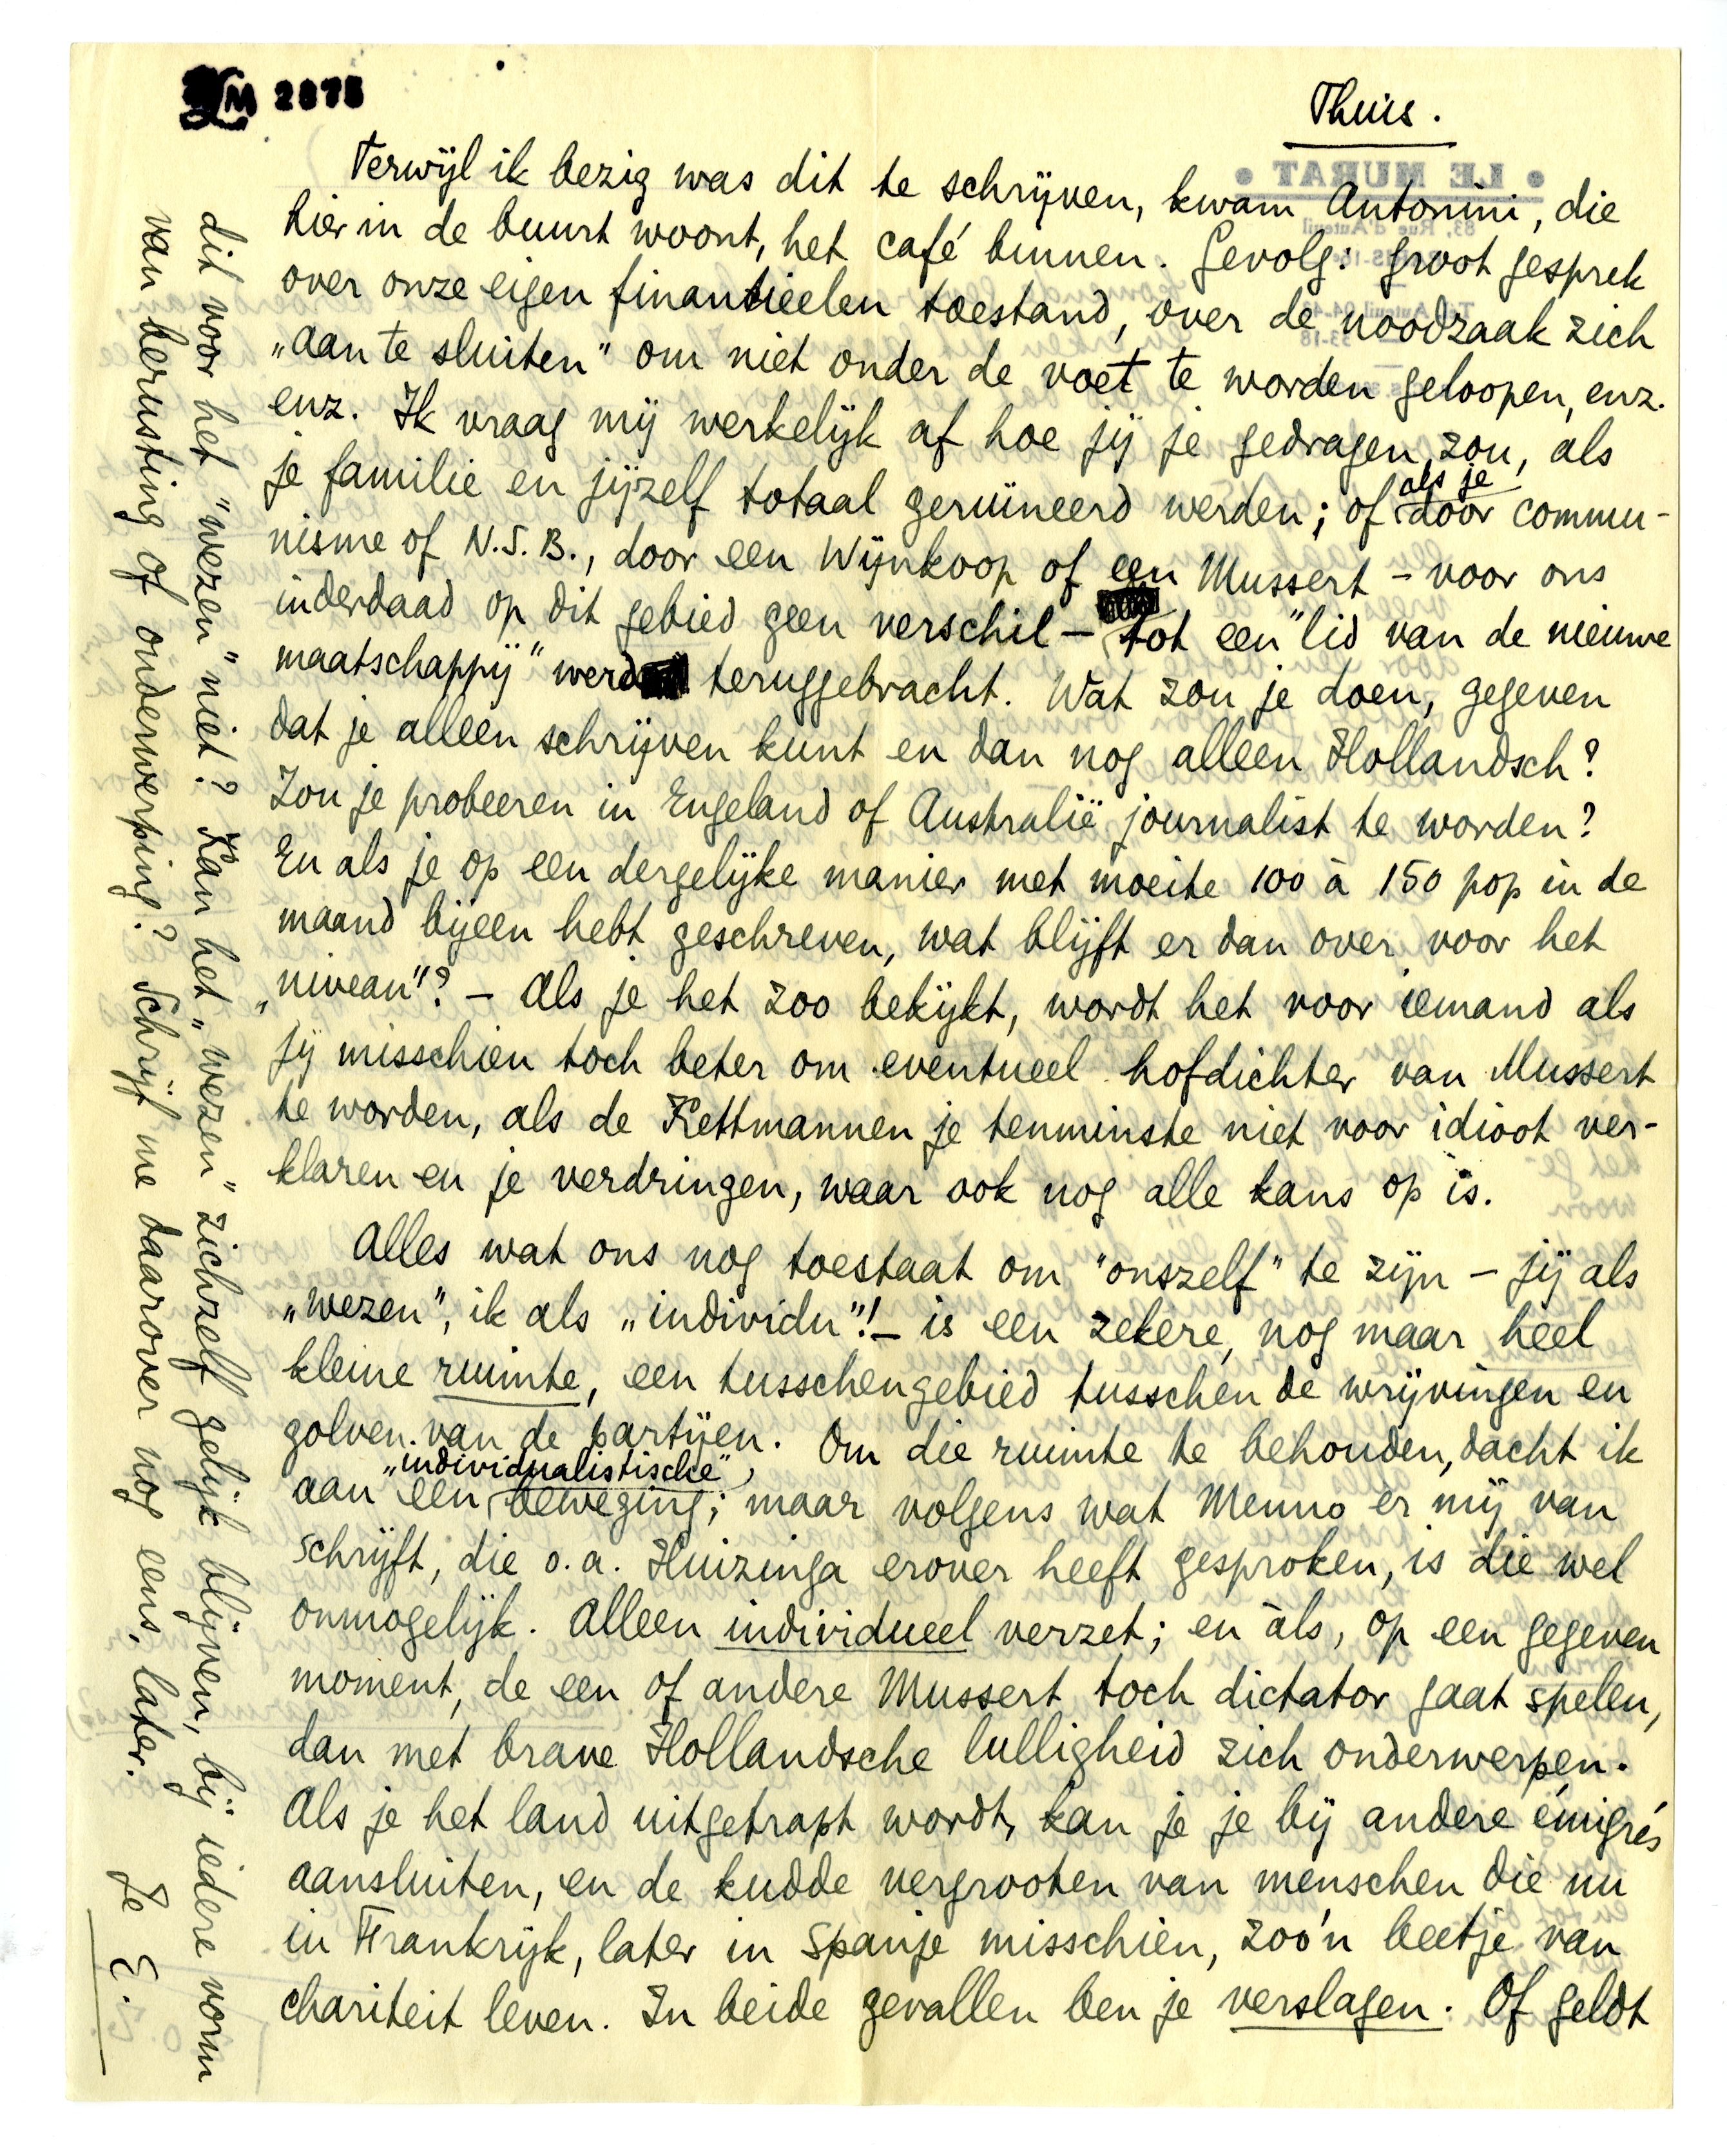 LM 2875
Thuis.
Terwijl ik bezig was dit te schrijven, kwam Antonini, die
hier in de buurt woont, het café binnen. Gevolg: groot gesprek
over onze eigen financieelen toestand, over de noodzaak zich
„aan te sluiten" om niet onder de voet te worden geloopen, enz.
enz. Ik vraag mij werkelijk af hoe jij je gedragen zou, als
je familie en jijzelf totaal geruïneerd werden; of als je door commu-
nisme of N.S.B., door een Wijnkoop of een Mussert – voor ons
inderdaad op dit gebied geen verschil – tot een "lid van de nieuwe
maatschappij" werd teruggebracht. Wat zou je doen, gegeven
dat je alleen schrijven kunt en dan nog alleen Hollandsch?
Zou je probeeren in Engeland of Australië journalist te worden?
En als je op een dergelijke manier met moeite 100 à 150 pop in de
maand bijeen hebt geschreven, wat blijft er dan over voor het
„niveau"? – Als je het zoo bekijkt, wordt het voor iemand als
jij misschien toch beter om eventueel hofdichter van Mussert
te worden, als de Kettmannen je tenminste niet voor idioot ver-
klaren en je verdringen, waar ook nog alle kans op is.
Alles wat ons nog toestaat om "onszelf" te zijn – jij als
„wezen", ik als „individu"! – is een zekere, nog maar heel
kleine ruimte, een tusschengebied tusschen de wrijvingen en
golven van de partijen. Om die ruimte te behouden, dacht ik
aan een „individualistische" beweging; maar volgens wat Menno er mij van
schrijft, die o.a. Huizinga erover heeft gesproken, is die wel
onmogelijk. Alleen individueel verzet; en àls, op een gegeven
moment, de een of andere Mussert toch dictator gaat spelen,
dan met brave Hollandsche lulligheid zich onderwerpen.
Als je het land uitgetrapt wordt, kan je je bij andere émigrés
aansluiten, en de kudde vergrooten van menschen die nu
in Frankrijk, later in Spanje misschien, zoo'n beetje van
chariteit leven. In beide gevallen ben je verslagen. Of geldt
dit voor het "wezen" niet? Kan het „wezen" zichzelf gelijk blijven, bij iedere vorm
van berusting of onderwerping? Schrijf me daarover nog eens, later.
Je E.
● LE MURAT ●
83, Rue d'Auteuil